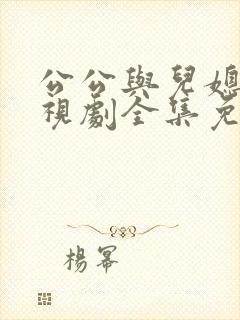 公公與兒媳
視劇全集免
楊冪